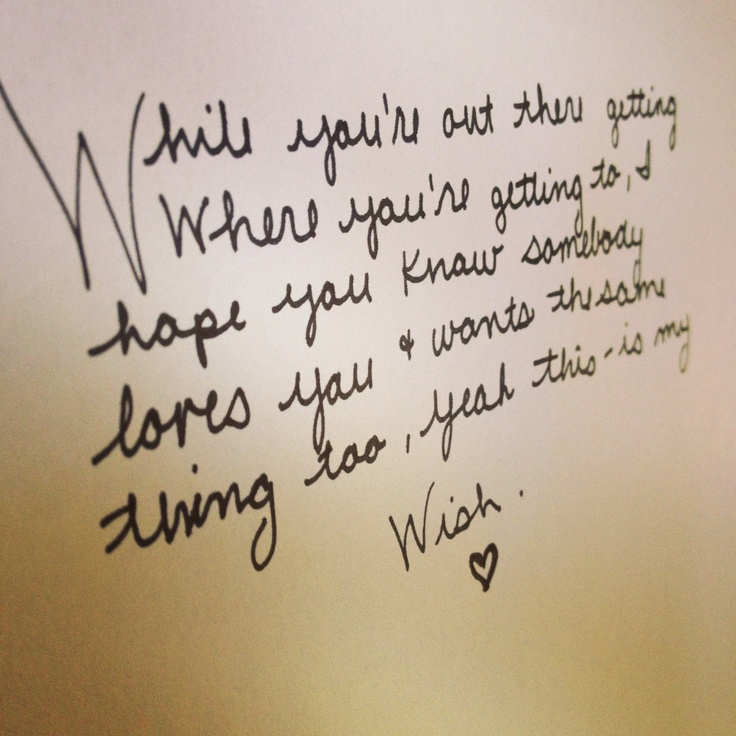 While you're out there getting
Where you're getting to, I
hope you know somebody
loves you & wants the same
thing too, yeah this - is my
Wish.